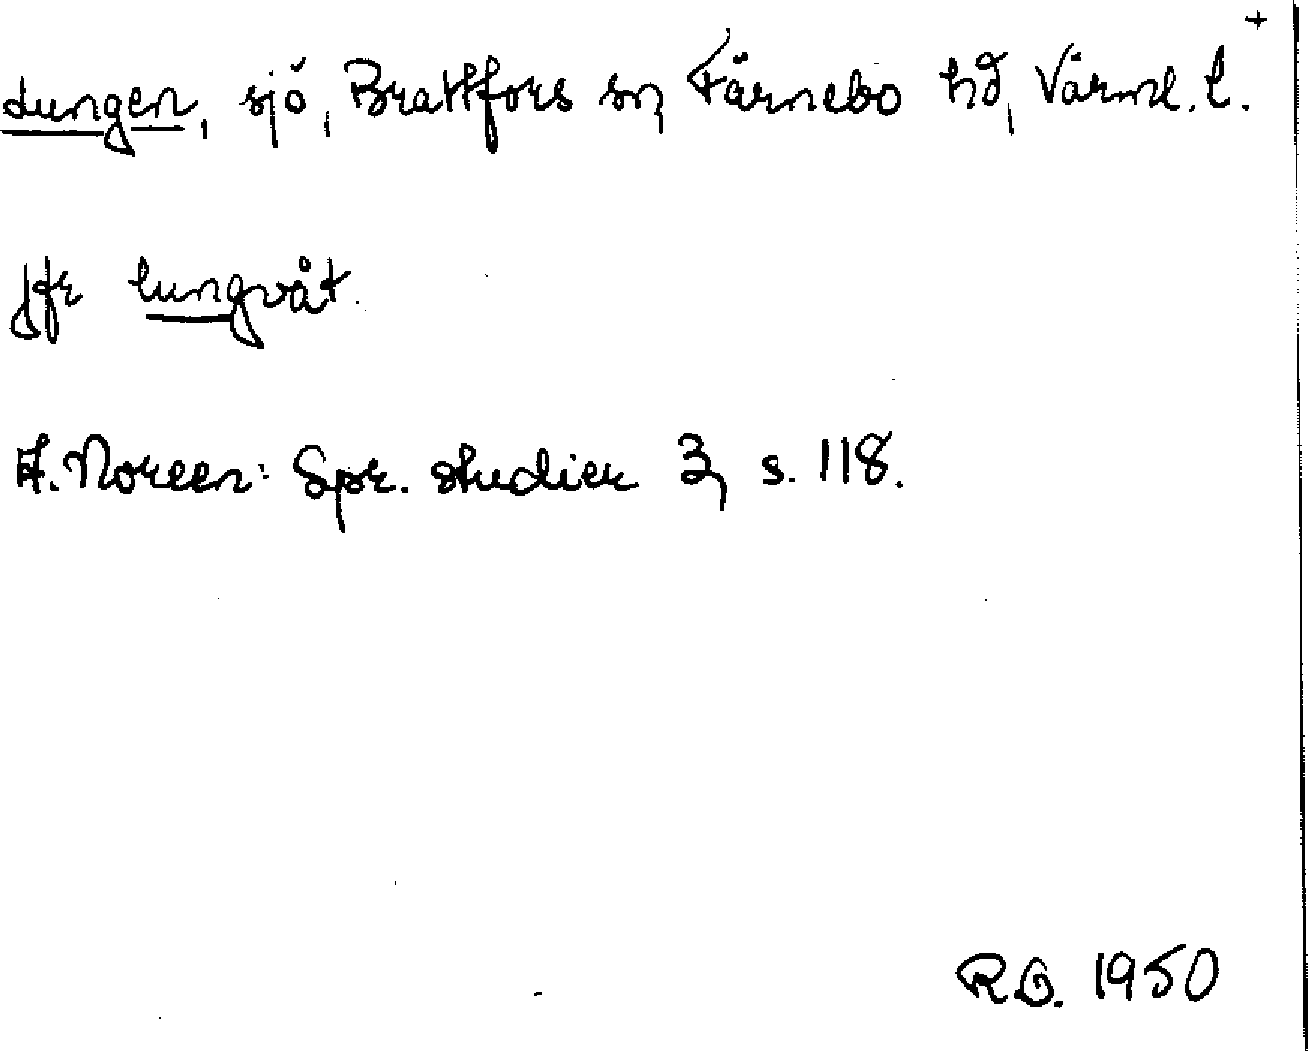 +
Lungen, sjö, Brattfors sn, Färnebo hd, Värml. l.
Jfr lungvåt.
A. Noreen: Spr. studier 3, s. 118.
R.G. 1950